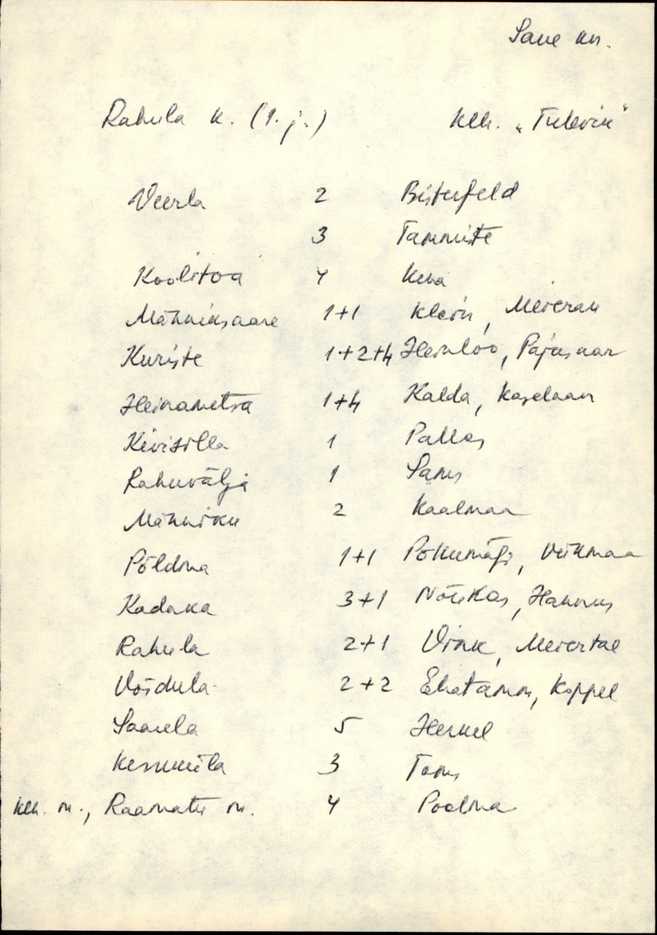 Saue kn.
Rahula k. (1. j.) klh. „Tulevik"
Veerla 2 Bisterfeld
3 Tammiste
Koolitoa 4 Kiva
Männiksaare 1+1 Klein, Meieran
Kuriste 1+2+4 Heinloo, Pajusaar
Heinametsa 1+4 Kalda, Kaselaan
Kivisilla 1 Pallas
Rahuvälja 1 Sams
Männiku 2 Kaalmaa
Põldma 1+1 Põkumägi, Veikmaa
Kadaka 3+1 Nõukas, Hannus
Rahula 2+1 Vink, Meiertal
Võidula 2+2 Ehatamm, Koppel
Saarela 5 Herkel
Keskküla 3 Toms
klh. m., Raamatu m. 4 Poolma